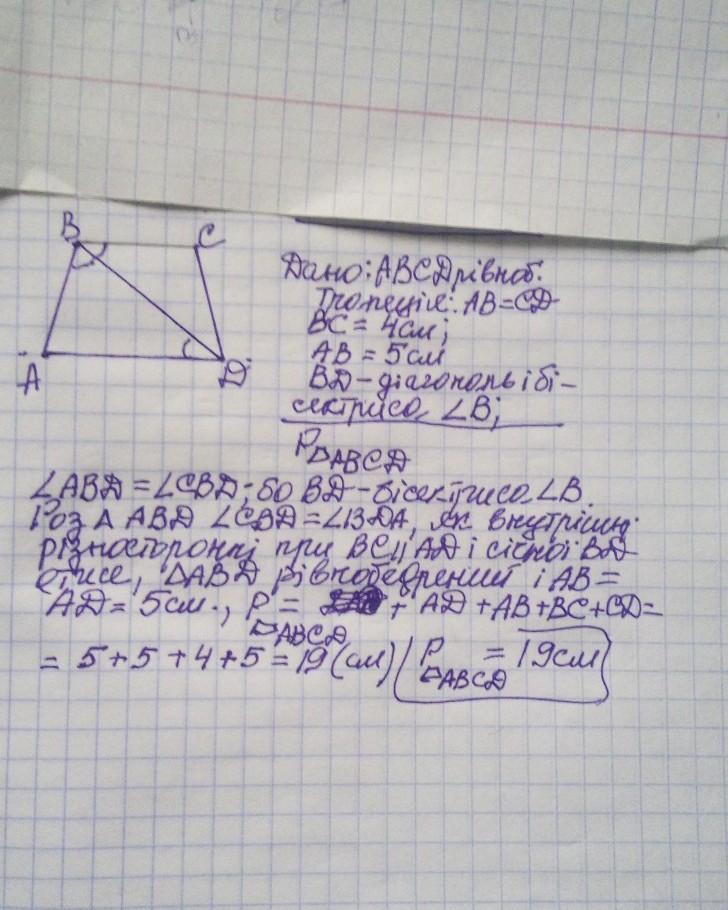 B C
A D
Дано: ABCD рівноб.
Трапеція: AB=CD
BC = 4см;
AB = 5см
BD - діагональ і бі-
сектриса ∠B;
P ABCD
∠ABD = ∠CBD, бо BD - бісектриса ∠B.
Роз Δ ABD ∠CBD = ∠BDA, як внутрішні
різносторонні при BC || AD і січної BD
отже, ΔABD рівнобедрений і AB =
AD = 5см., P ABCD = + AD + AB + BC + CD =
= 5 + 5 + 4 + 5 = 19 (см) P ABCD = 19см